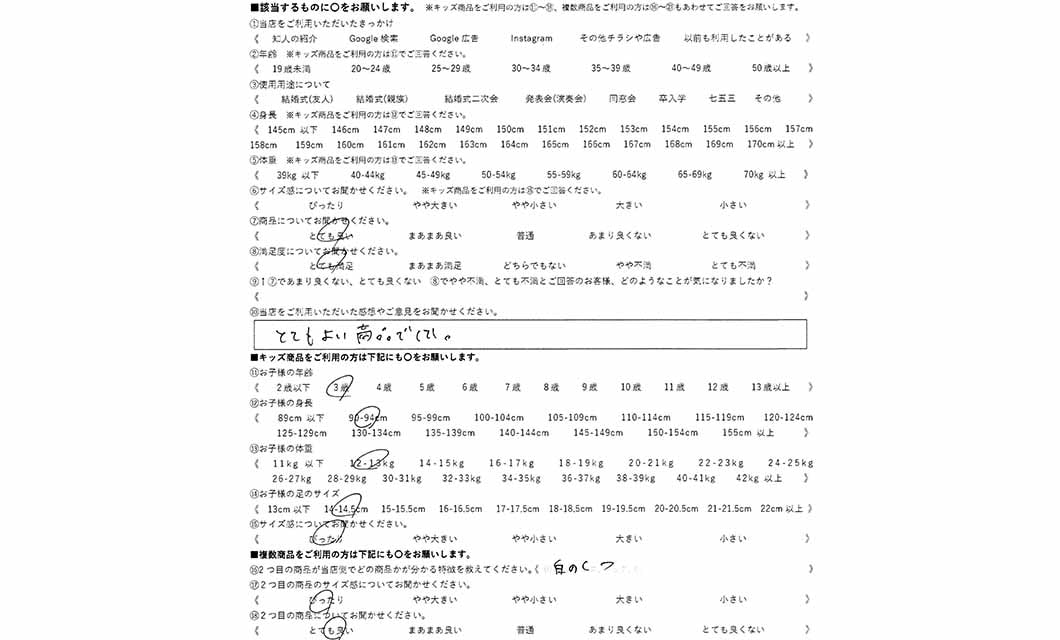 ■該当するものに〇をお願いします。 ※キッズ商品をご利用の方は⑪～⑮、複数商品をご利用の方は⑯～㉑もあわせてご回答をお願いします。
①当店をご利用いただいたきっかけ
《 知人の紹介 Google 検索 Google 広告 Instagram その他チラシや広告 以前も利用したことがある 》
②年齢 ※キッズ商品をご利用の方は⑪でご回答ください。
《 19歳未満 20～24歳 25～29歳 30～34歳 35～39歳 40～49歳 50歳以上 》
③使用用途について
《 結婚式(友人) 結婚式(親族) 結婚式二次会 発表会(演奏会) 同窓会 卒入学 七五三 その他 》
④身長 ※キッズ商品をご利用の方は⑫でご回答ください。
《 145cm 以下 146cm 147cm 148cm 149cm 150cm 151cm 152cm 153cm 154cm 155cm 156cm 157cm
158cm 159cm 160cm 161cm 162cm 163cm 164cm 165cm 166cm 167cm 168cm 169cm 170cm 以上 》
⑤体重 ※キッズ商品をご利用の方は⑬でご回答ください。
《 39kg 以下 40-44kg 45-49kg 50-54kg 55-59kg 60-64kg 65-69kg 70kg 以上 》
⑥サイズ感についてお聞かせください。 ※キッズ商品をご利用の方は⑮でご回答ください。
《 ぴったり やや大きい やや小さい 大きい 小さい 》
⑦商品についてお聞かせください。
《 とても良い まあまあ良い 普通 あまり良くない とても良くない 》
⑧満足度についてお聞かせください。
《 とても満足 まあまあ満足 どちらでもない やや不満 とても不満 》
⑨↑⑦であまり良くない、とても良くない ⑧でやや不満、とても不満とご回答のお客様、どのようなことが気になりましたか？
《 》
⑩当店をご利用いただいた感想やご意見をお聞かせください。
とてもよい商品でした。
■キッズ商品をご利用の方は下記にも〇をお願いします。
⑪お子様の年齢
《 2歳以下 3歳 4歳 5歳 6歳 7歳 8歳 9歳 10歳 11歳 12歳 13歳以上 》
⑫お子様の身長
《 89cm 以下 90-94cm 95-99cm 100-104cm 105-109cm 110-114cm 115-119cm 120-124cm
125-129cm 130-134cm 135-139cm 140-144cm 145-149cm 150-154cm 155cm 以上 》
⑬お子様の体重
《 11kg 以下 12-13kg 14-15kg 16-17kg 18-19kg 20-21kg 22-23kg 24-25kg
26-27kg 28-29kg 30-31kg 32-33kg 34-35kg 36-37kg 38-39kg 40-41kg 42kg 以上 》
⑭お子様の足のサイズ
《 13cm 以下 14-14.5cm 15-15.5cm 16-16.5cm 17-17.5cm 18-18.5cm 19-19.5cm 20-20.5cm 21-21.5cm 22cm 以上 》
⑮サイズ感についてお聞かせください。
《 ぴったり やや大きい やや小さい 大きい 小さい 》
■複数商品をご利用の方は下記にも〇をお願いします。
⑯2つ目の商品が当店側でどの商品かが分かる特徴を教えてください。《 白のくつ
⑰2つ目の商品のサイズ感についてお聞かせください。
《 ぴったり やや大きい やや小さい 大きい 小さい 》
⑱2つ目の商品についてお聞かせください。
《 とても良い まあまあ良い 普通 あまり良くない とても良くない 》